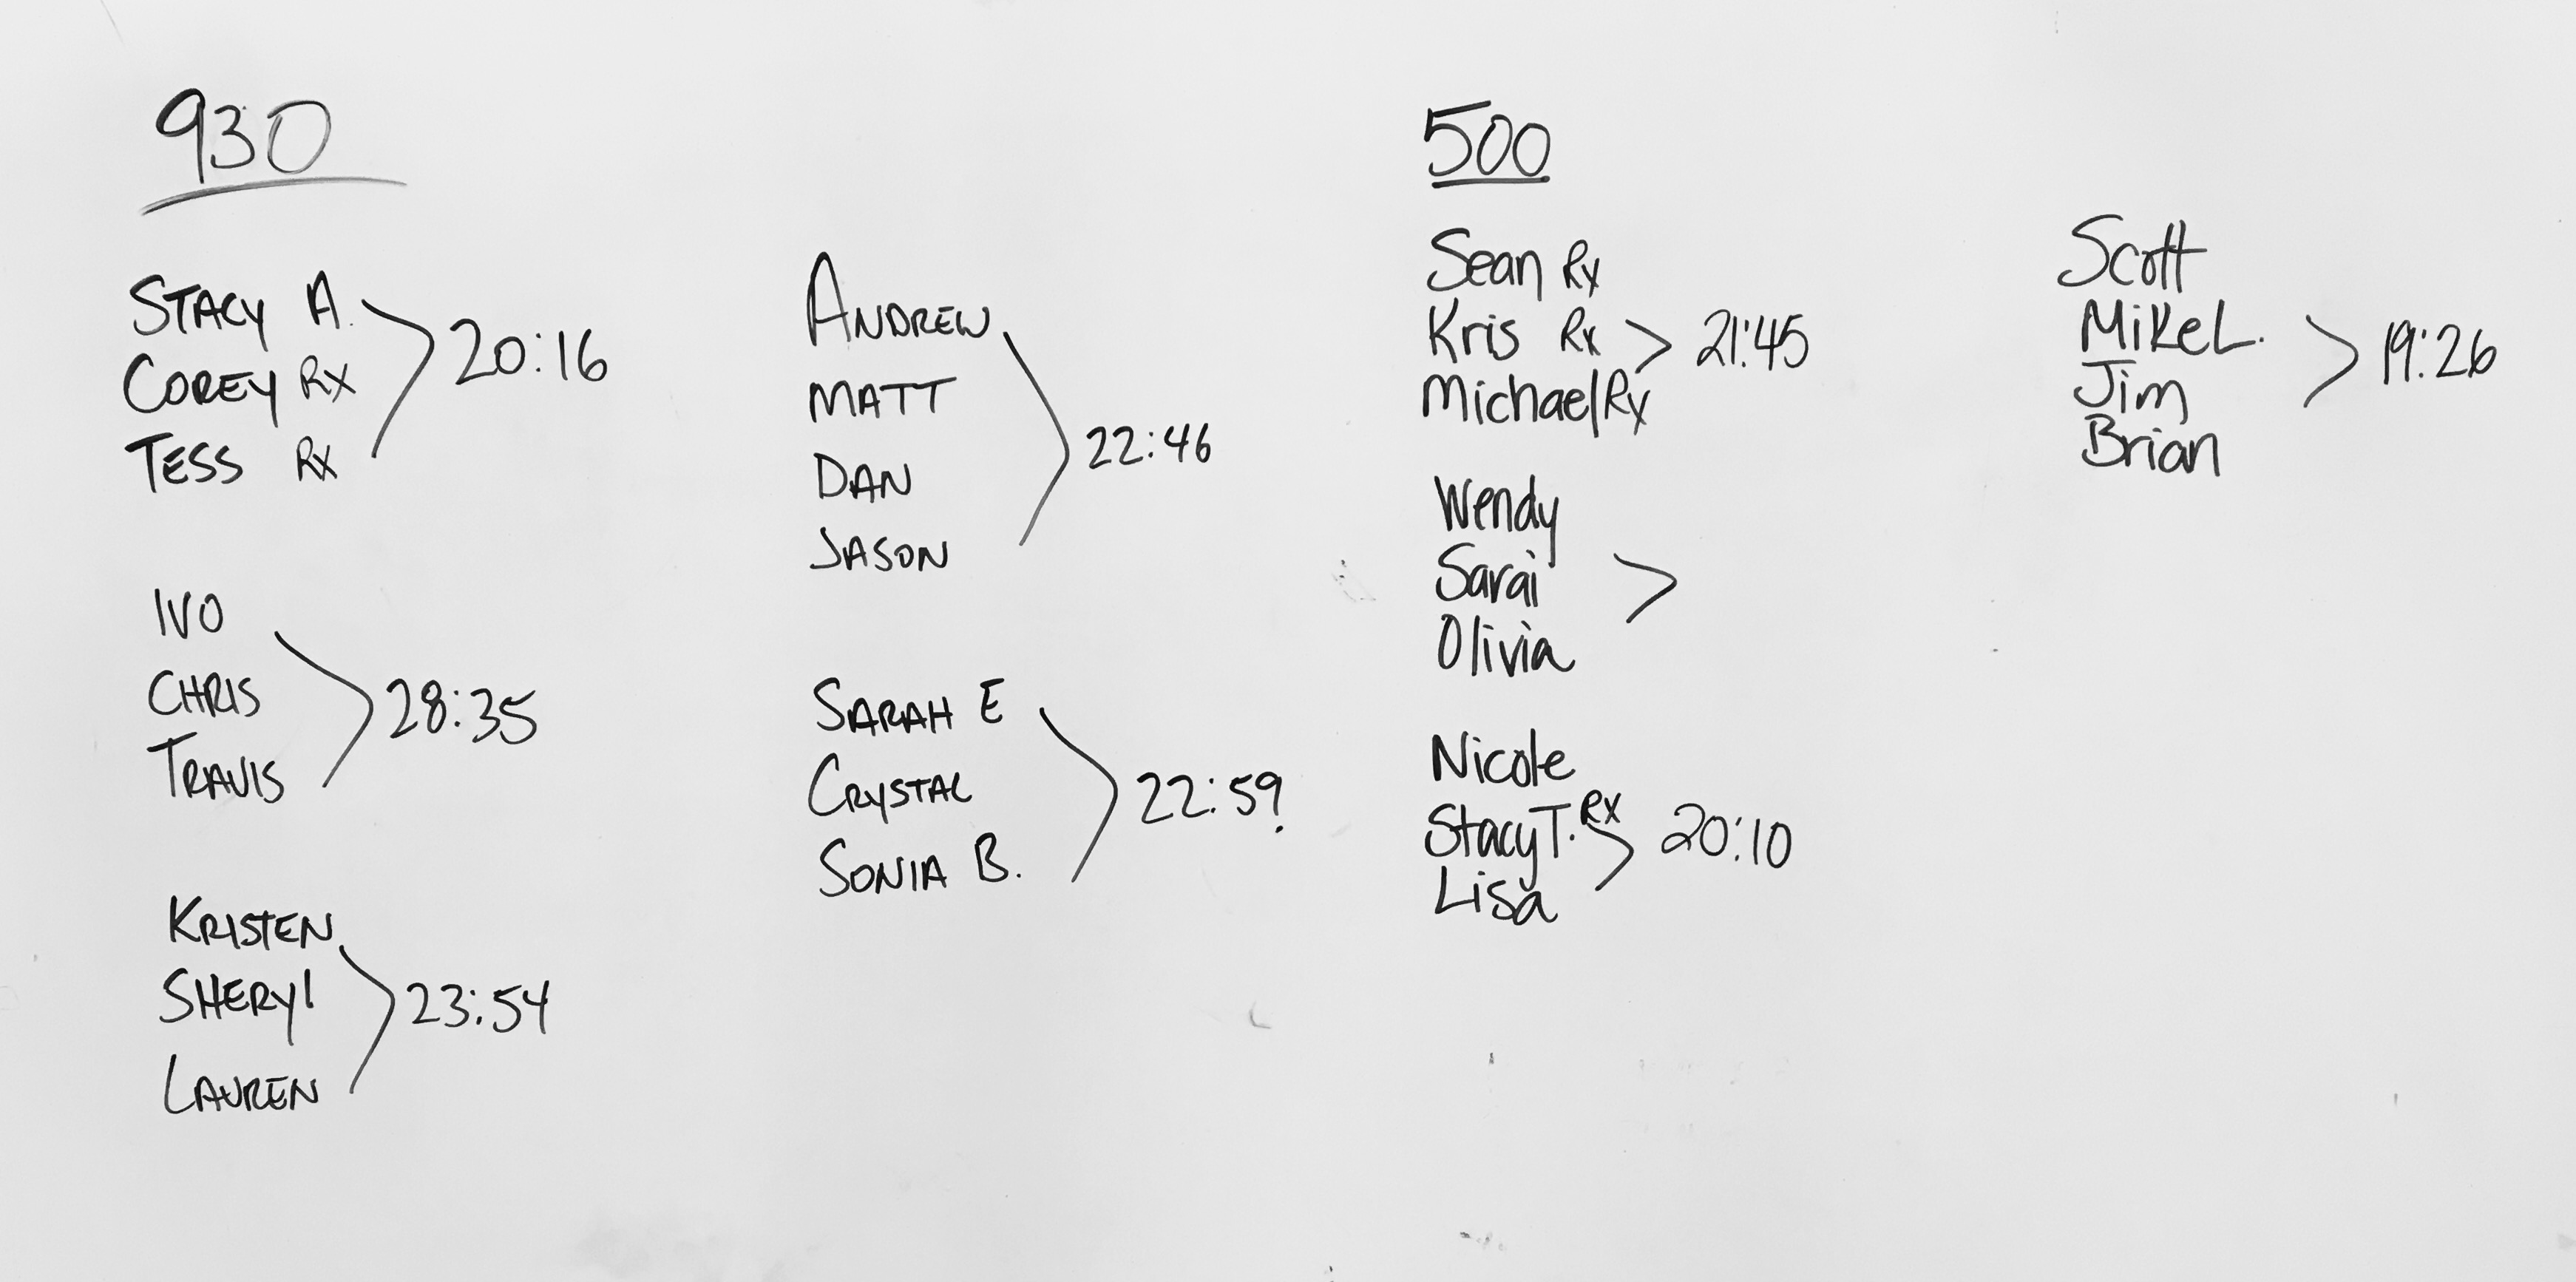 930
STACY A.
COREY RX
TESS RX
20:16
IVO
CHRIS
TRAVIS
28:35
KRISTEN
SHERYl
LAUREN
23:54
ANDREW
MATT
DAN
JASON
22:46
SARAH E
CRYSTAL
SONIA B.
22:59
500
Sean Rx
Kris Rx
Michael Rx
21:45
Wendy
Sarai
Olivia
Nicole
Stacy T. RX
Lisa
20:10
Scott
Mike L.
Jim
Brian
19:26